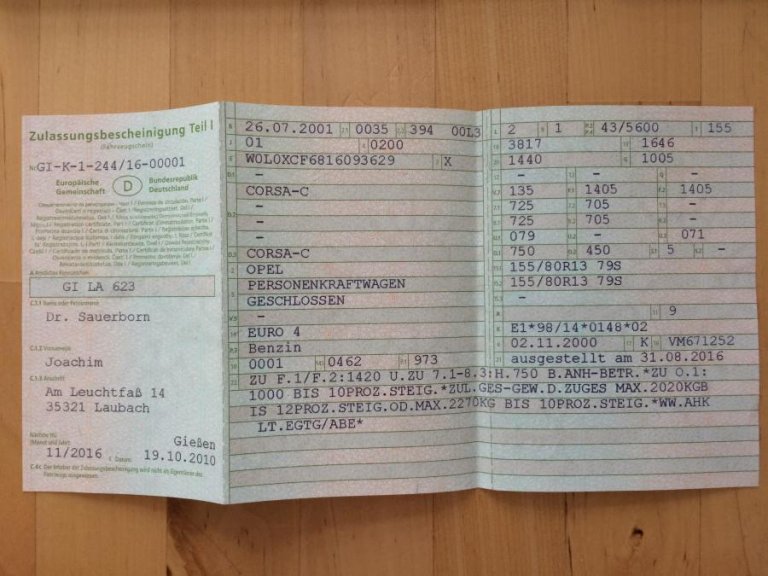 Zulassungsbescheinigung Teil I
(Fahrzeugschein)
Nr. GI-K-1-244/16-00001
Europäische Gemeinschaft D Bundesrepublik Deutschland
A Amtliches Kennzeichen
GI LA 623
C.1.1 Name oder Firmenname
Dr. Sauerborn
C.1.2 Vorname(n)
Joachim
C.1.3 Anschrift
Am Leuchtfaß 14
35321 Laubach
Nächste HU
(Monat und Jahr)
11/2016
Gießen
I Datum: 19.10.2010
C.4c Der Inhaber der Zulassungsbescheinigung wird nicht als Eigentümer des
Fahrzeugs ausgewiesen.
B 26.07.2001 2.1 0035 2.2 394 00L3
J 01 4 0200
E W0L0XCF6816093629 3 X
D.1 -
D.2 CORSA-C
-
-
-
D.3 CORSA-C
2 OPEL
5 PERSONENKRAFTWAGEN
GESCHLOSSEN
V.9 -
14 EURO 4
P.3 Benzin
10 0001 14.1 0462 P.1 973
22 ZU F.1/F.2:1420 U.ZU 7.1-8.3:H.750 B.ANH-BETR.*ZU O.1:
1000 BIS 10PROZ.STEIG.*ZUL.GES-GEW.D.ZUGES MAX.2020KGB
IS 12PROZ.STEIG.OD.MAX.2270KG BIS 10PROZ.STEIG.*WW.AHK
LT.EGTG/ABE*
L 2 9 1 P.2 P.4 43/5600 T 155
18 3817 19 1646
20 1440 G 1005
12 - 13 - Q -
V.7 135 F.1 1405 F.2 1405
7.1 725 7.2 705 7.3 -
8.1 725 8.2 705 8.3 -
U.1 079 U.2 - U.3 071
O.1 750 O.2 450 S.1 5 S.2 -
15.1 155/80R13 79S
15.2 155/80R13 79S
15.3 -
R -
11 9
K E1*98/14*0148*02
6 02.11.2000 17 K 16 VM671252
21 ausgestellt am 31.08.2016